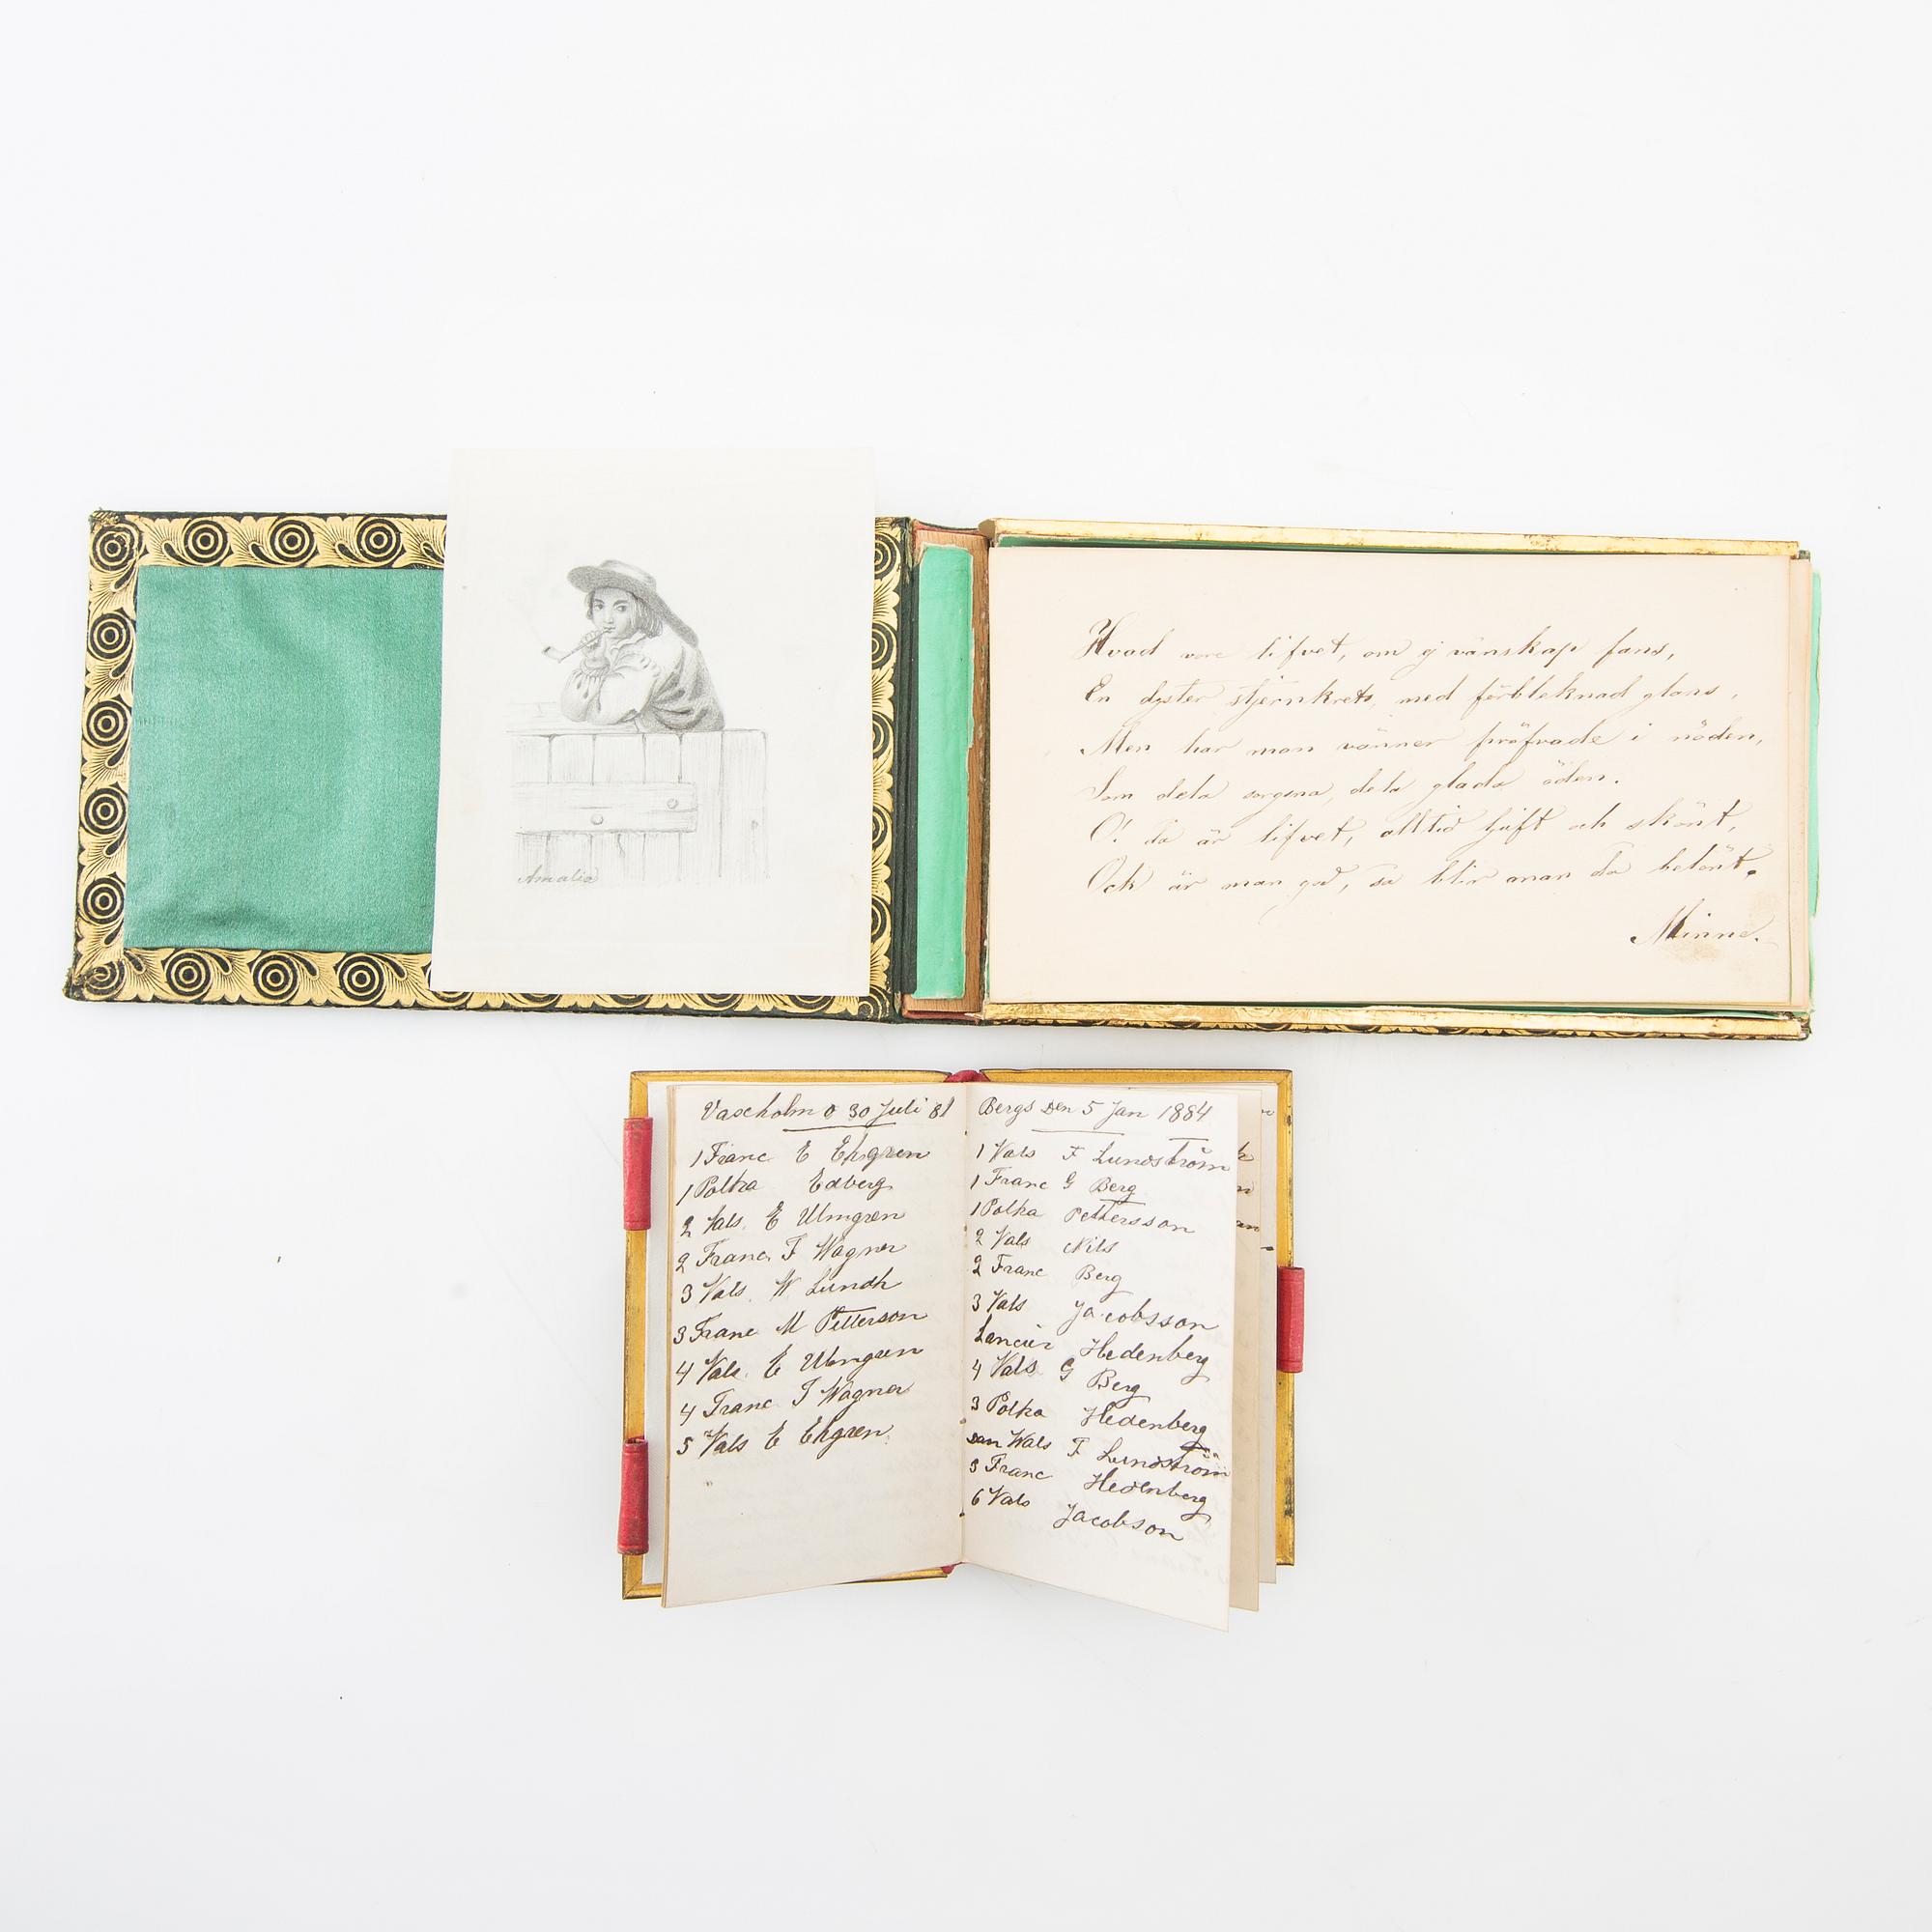 Amalia
Hvad vore lifvet, om ej vänskap fans,
En dyster stjernkrets, med förbleknad glans,
Men har man vänner pröfvade i nöden,
Som dela sorgsna, dela glada öden.
O! då är lifvet, alltid ljuft och skönt,
Ock är man god, så blir man då belönt.
Minne.
Vaxholm d 30 Juli 81
1 Franc E Ehgren
1 Polka Edberg
2 Vals. E Ulmgren
2 Franc. F Wagner
3 Vals. W Lundh
3 Franc M Petterson
4 Vals. E Ulmgren
4 Franc F Wagner
5 Vals E Ehgren
Bergs den 5 Jan 1884
1 Vals F Lundström
1 Franc G Berg
1 Polka Pettersson
2 Vals Nils
2 Franc Berg
3 Vals Jacobsson
Lancier Hedenberg
4 Vals G Berg
3 Polka Hedenberg
Wals F Lundström
3 Franc Hedenberg
6 Vals Jacobson